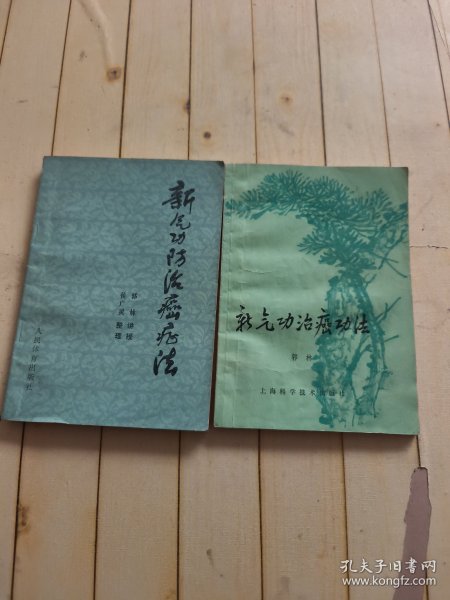 新气功防治癌症法
郭林讲授
张广灵整理
人民体育出版社
新气功治癌功法
郭林
上海科学技术出版社
孔夫子旧书网
www.kongfz.com